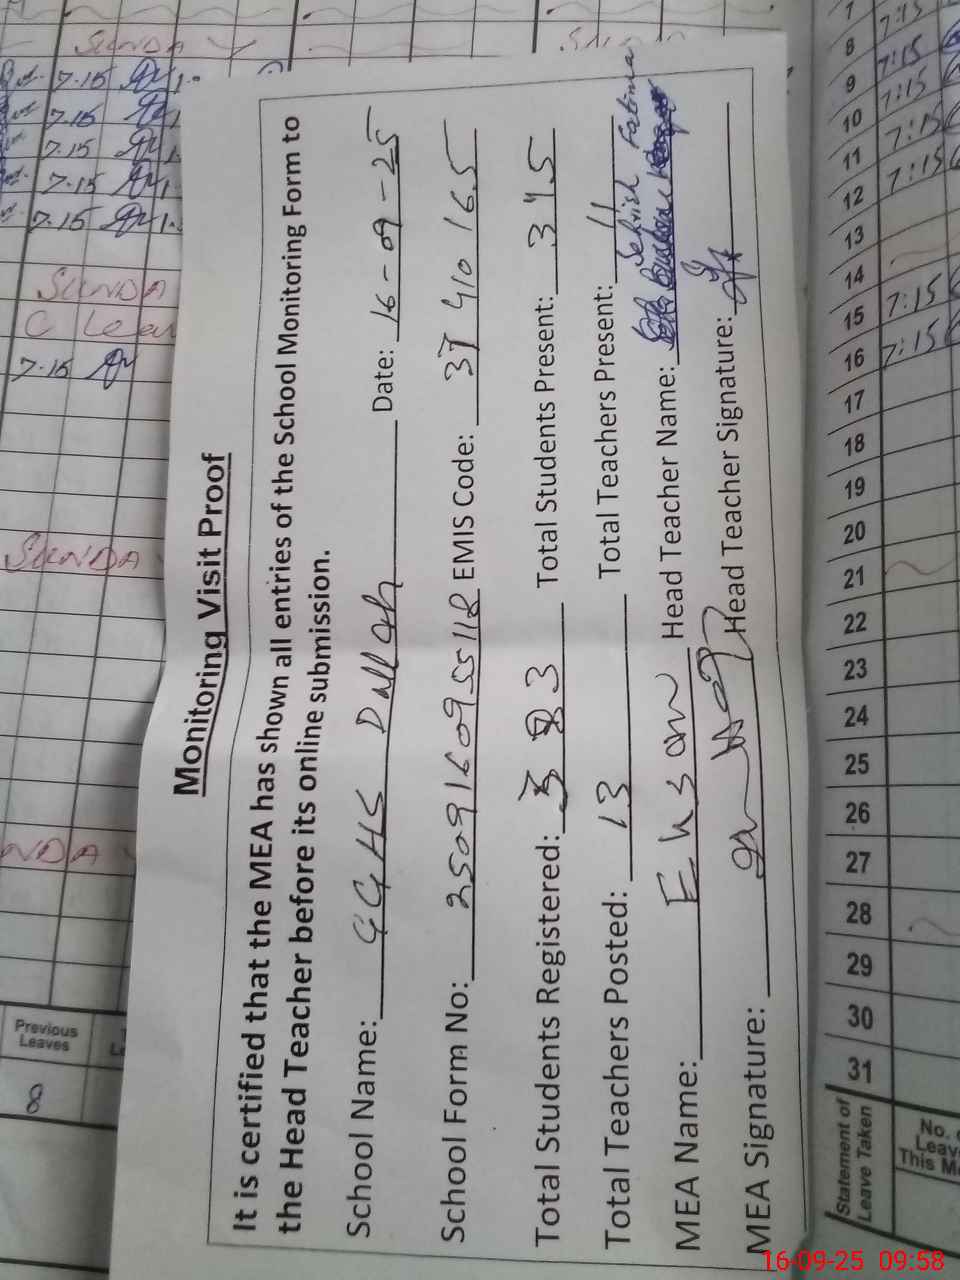 Monitoring Visit Proof
It is certified that the MEA has shown all entries of the School Monitoring Form to
the Head Teacher before its online submission.
School Name: GGHS Dullah Date: 16-09-25
School Form No: 2509160955118 EMIS Code: 37410165
Total Students Registered: 3 3 Total Students Present: 345
Total Teachers Posted: 13 Total Teachers Present: 11
MEA Name: Ehsan Head Teacher Name: Sehrish Fatima
MEA Signature: Head Teacher Signature:
SUNDA
7.15
7.15
7.15
7.15
7.15
SUNDA
C Lea
7.15
SUNDA
NDA
Previous
Leaves
8
7 7:15
8 7:15
9 7:15
10 7:15
11 7:15
12
13
14 7:15
15 7:15
16
17
18
19
20
21
22
23
24
25
26
27
28
29
30
31
Statement of
Leave Taken
No.
Leav
This M
16-09-25 09:58